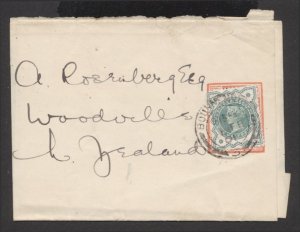 A. Rosenberg Esq
Woodville
N Zealand